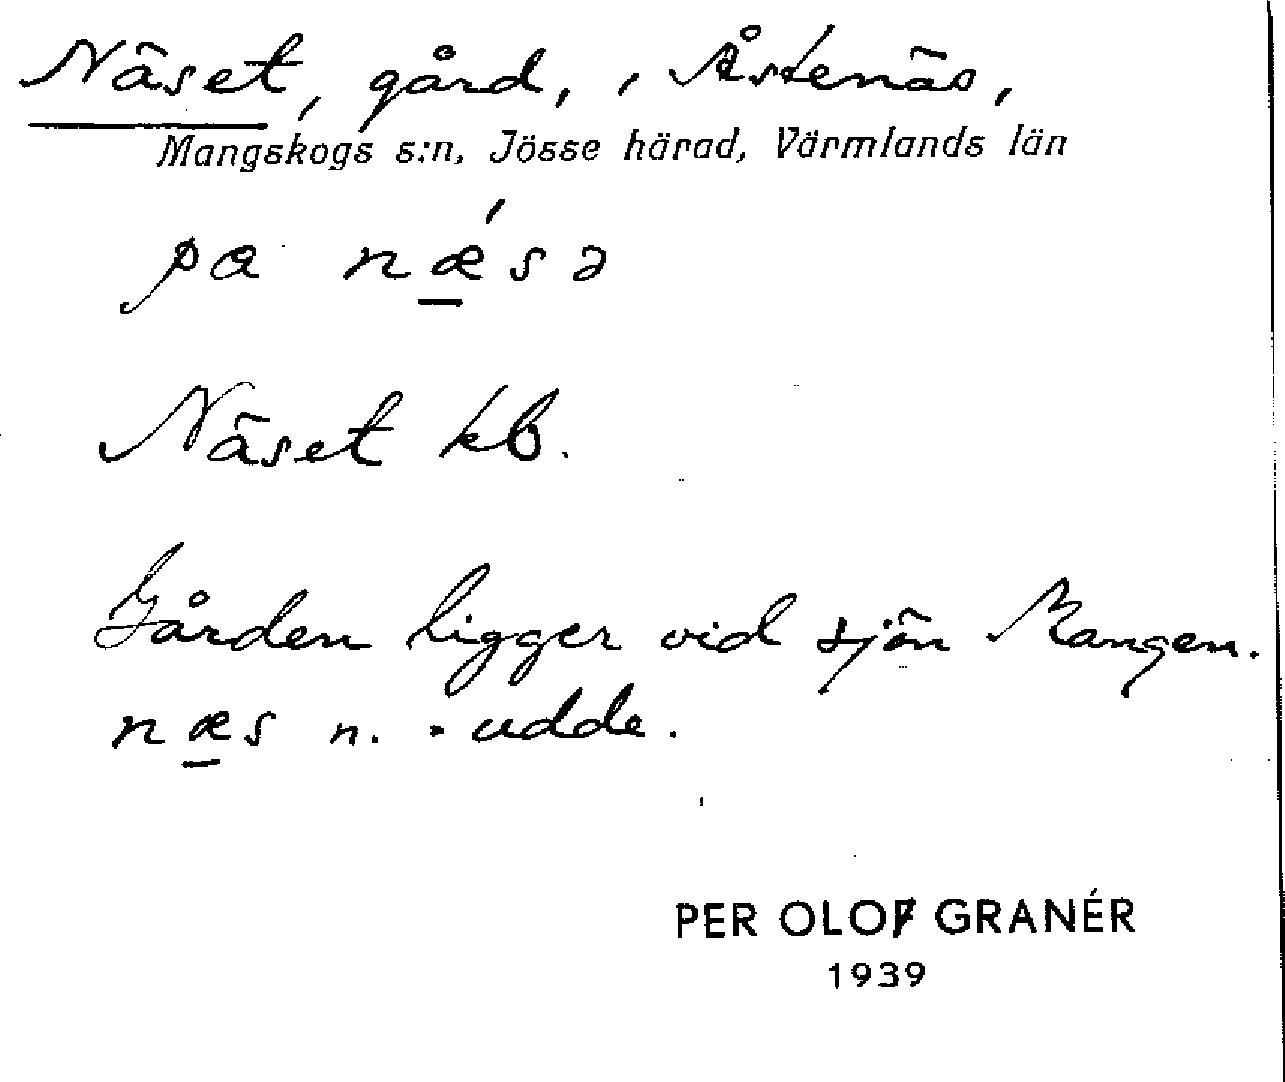 Näset, gård, i Åstenäs,
Mangskogs s:n, Jösse härad, Värmlands län
pa nǽ̲sə
Näset kb.
Gården ligger vid sjön Mangen.
næ̲s n. = udde.
PER OLOF GRANÉR
1939